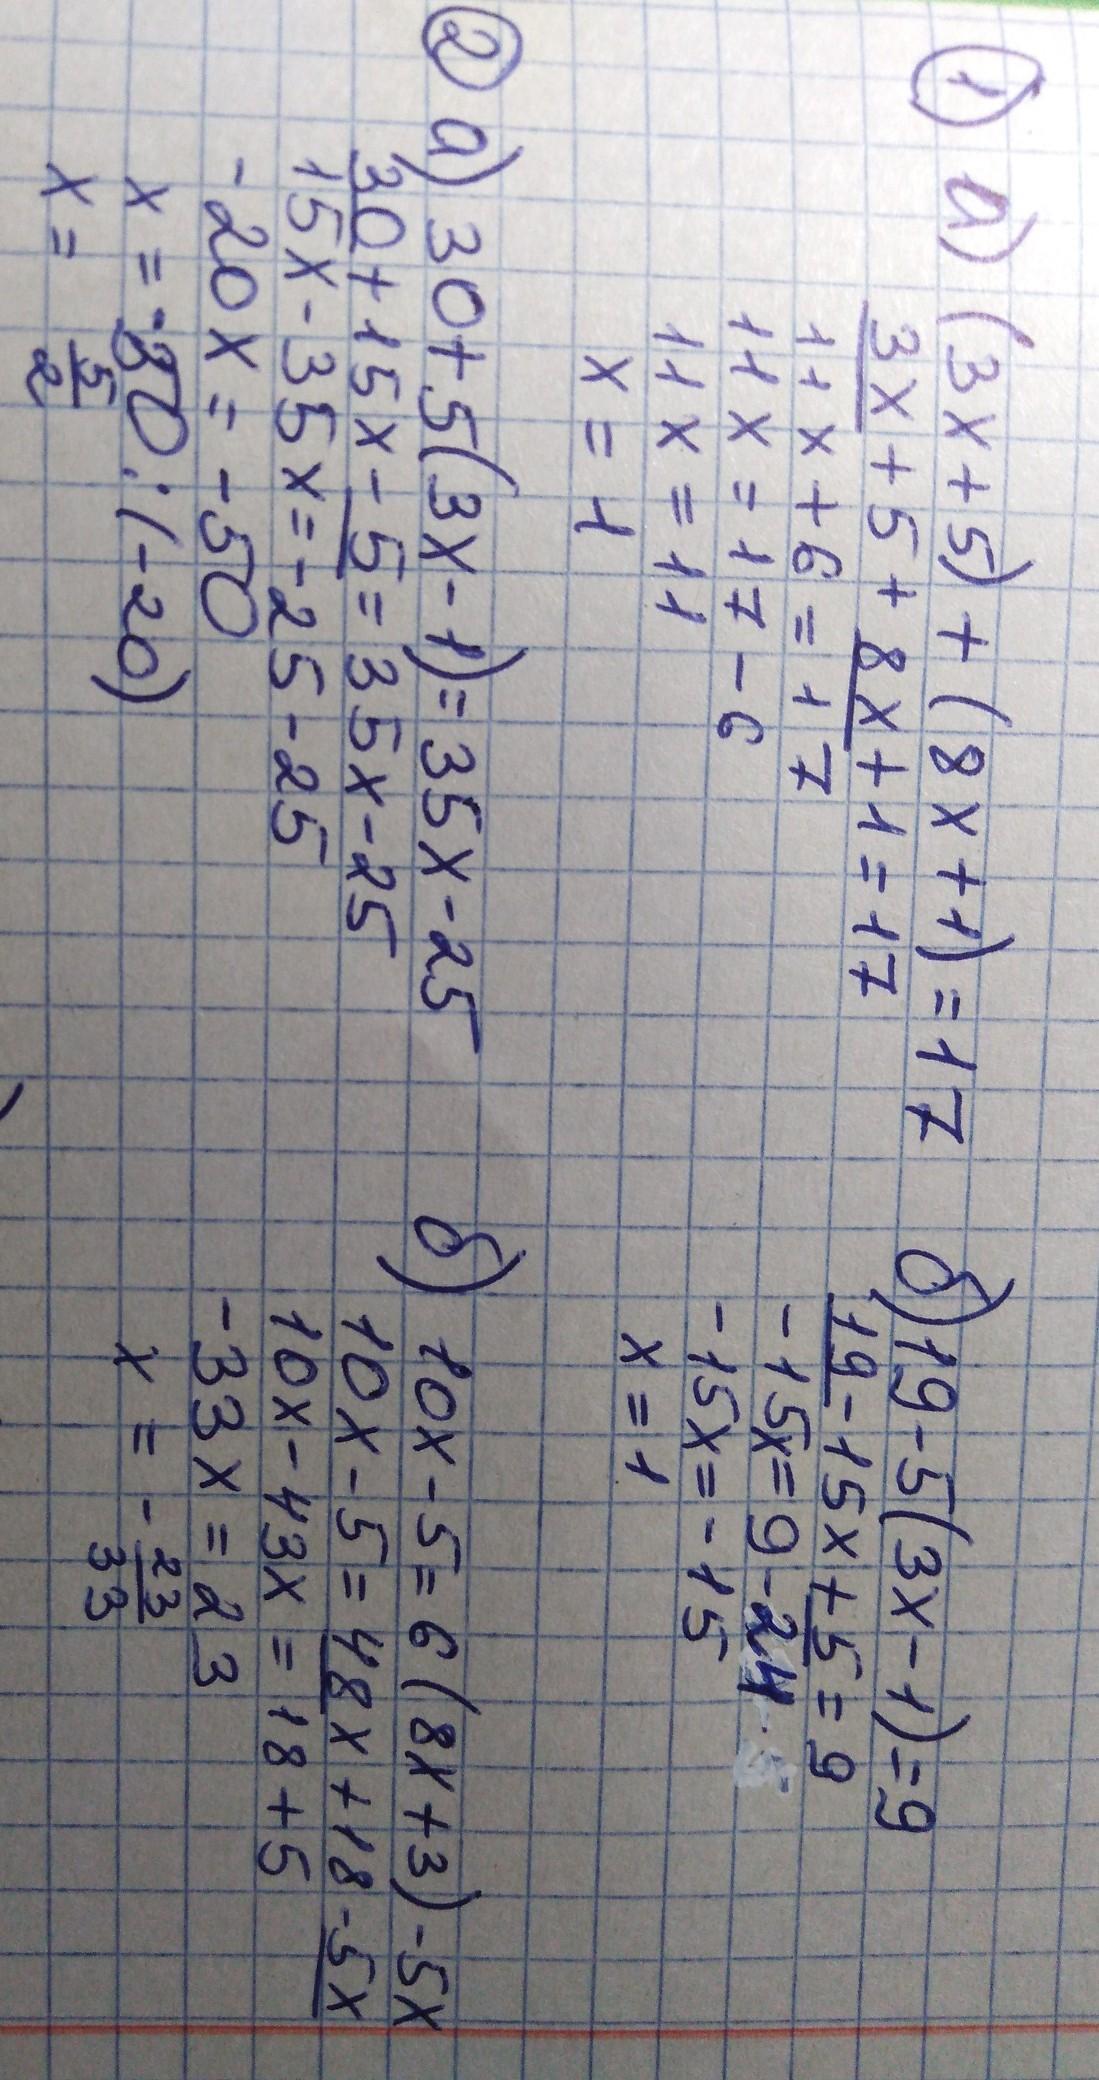 ① а) (3x+5)+(8x+1)=17
3x+5+8x+1=17
11x+6=17
11x=17-6
11x=11
x=1
б) 19-5(3x-1)=9
19-15x+5=9
-15x=9-24
-15x=-15
x=1
② а) 30+5(3x-1)=35x-25
30+15x-5=35x-25
15x-35x=-25-25
-20x=-50
x=-50:(-20)
x=5/2
б) 10x-5=6(8x+3)-5x
10x-5=48x+18-5x
10x-43x=18+5
-33x=23
x=-23/33